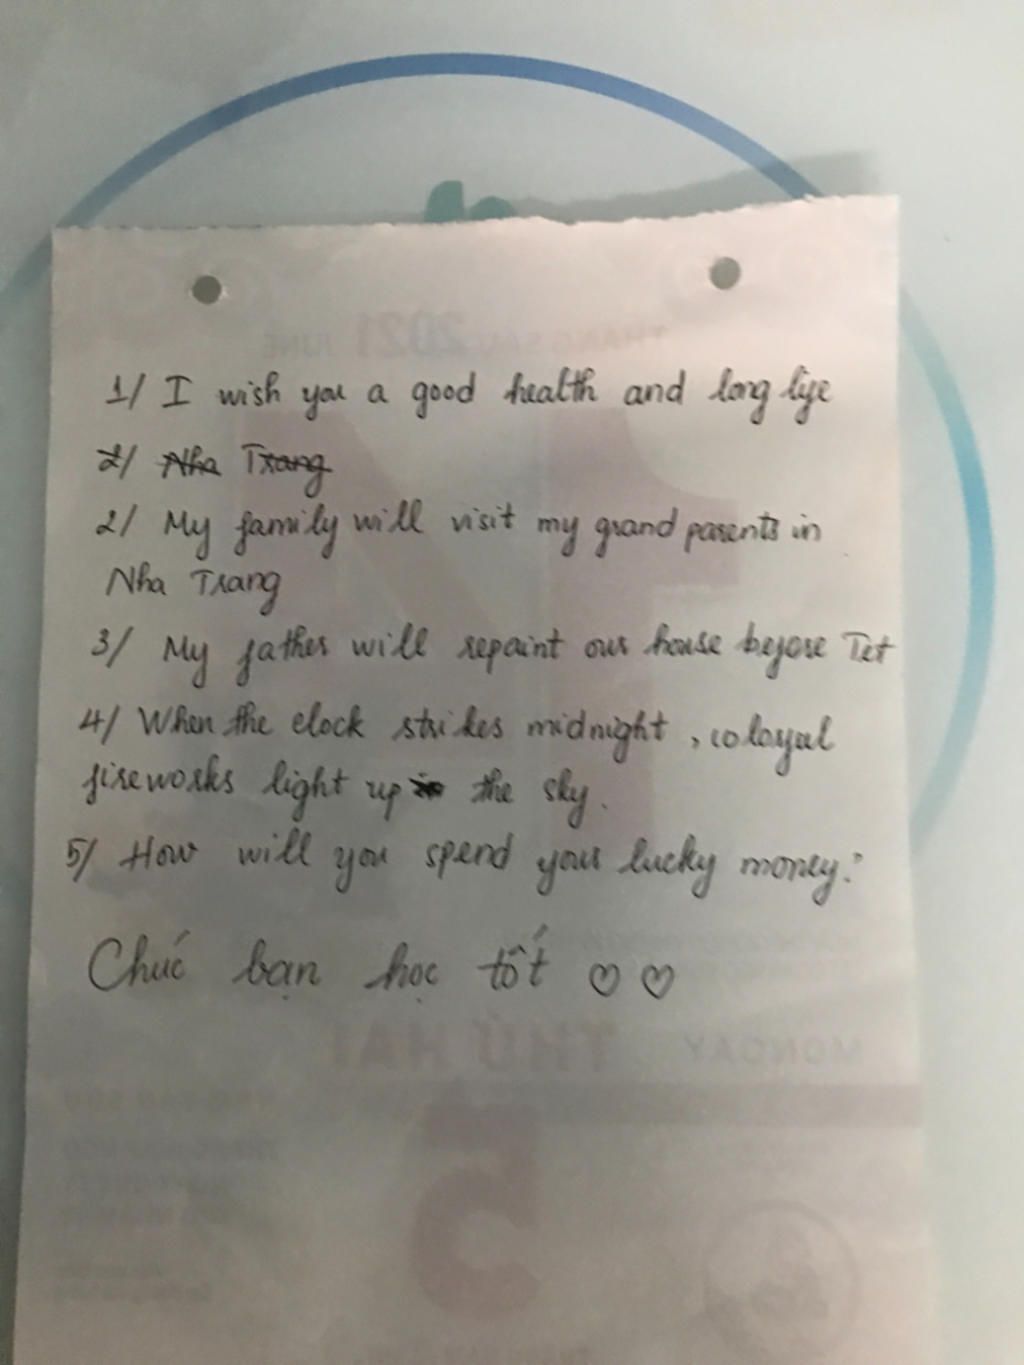 THÁNG SÁU 2021 JUNE
1/ I wish you a good health and long life
2/ Nha Trang
2/ My family will visit my grand parents in
Nha Trang
3/ My father will repaint our house before Tet
4/ When the clock strikes midnight, colorful
fireworks light up in the sky.
5/ How will you spend your lucky money?
Chúc bạn học tốt ♡♡
MONDAY THỨ HAI